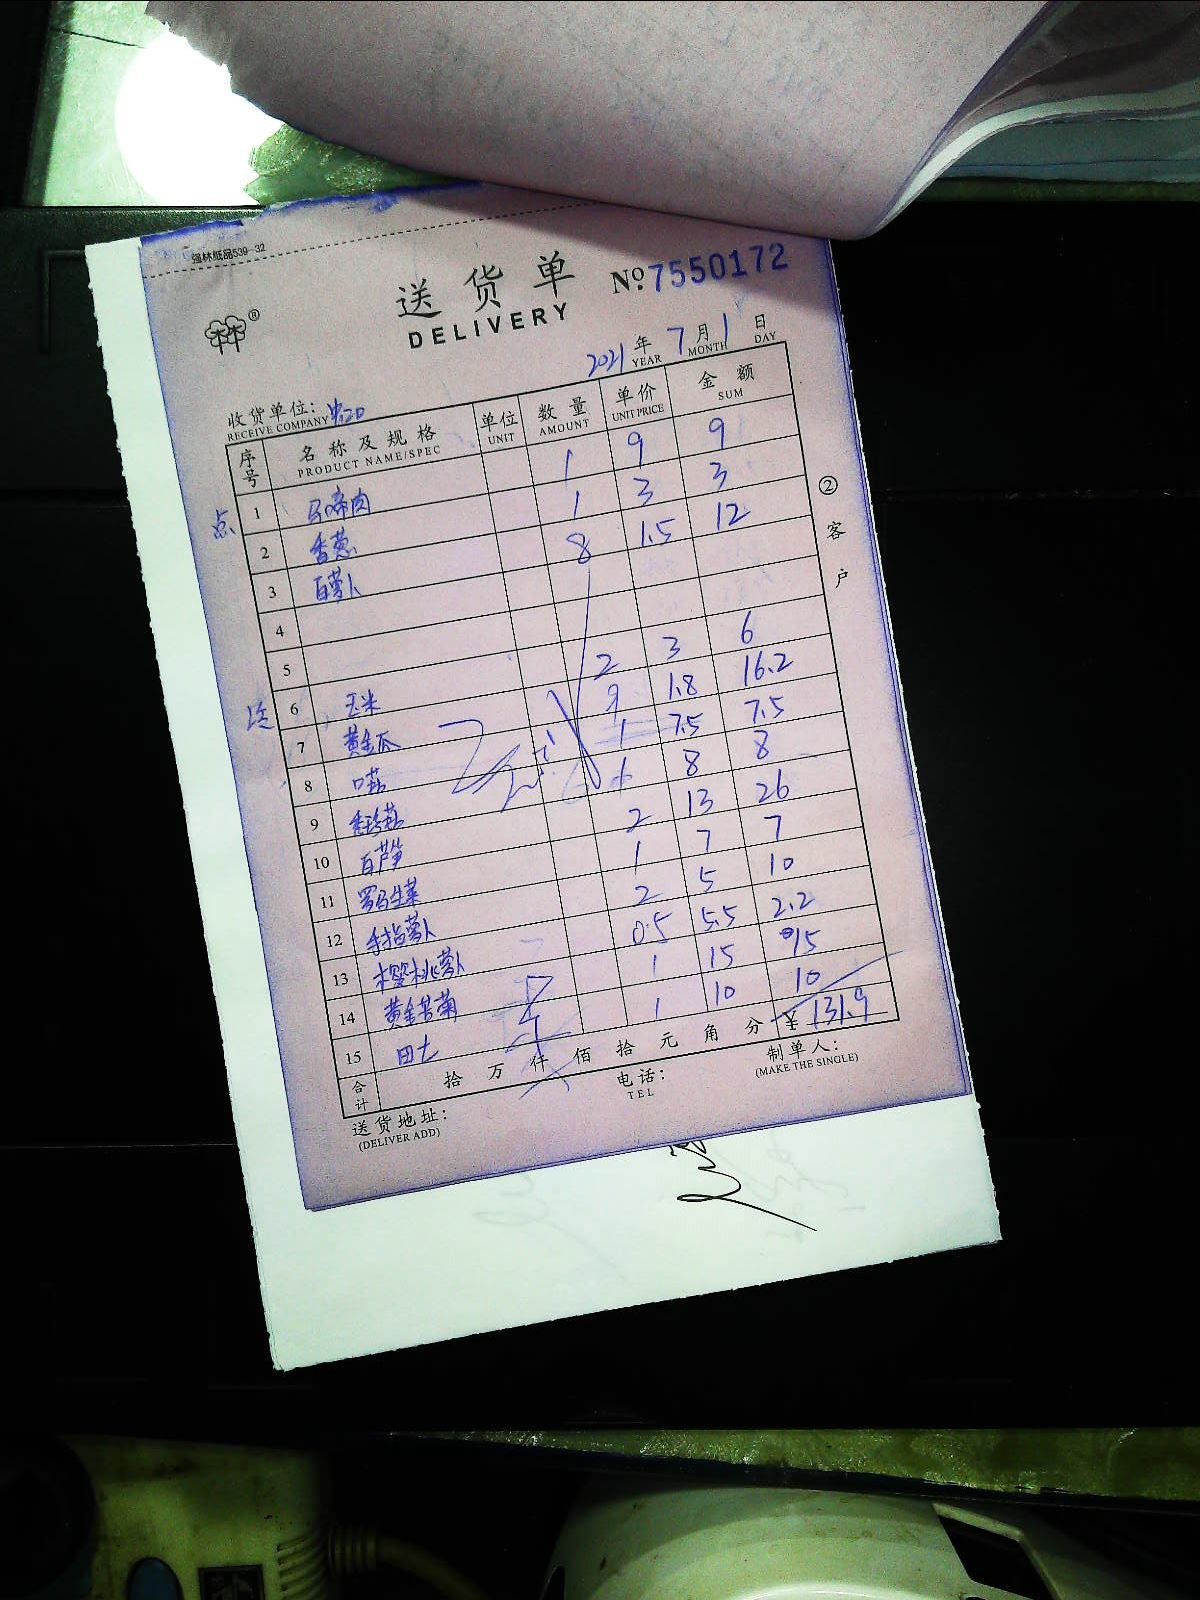 强林纸品539-32
送货单
DELIVERY
№ 7550172
2021 年 7 月 1 日
YEAR MONTH DAY
收货单位:
RECEIVE COMPANY
序号 名称及规格 单位 数量 单价 金额
PRODUCT NAME/SPEC UNIT AMOUNT UNIT PRICE SUM
点 1 马啼肉 1 9 9
2 香葱 1 3 3
3 白萝卜 8 1.5 12
4
5
6 玉米 2 3 6
7 黄金瓜 9 1.8 16.2
8 口菇 1 7.5 7.5
9 秀珍菇 1 8 8
10 白芦笋 2 13 26
11 罗马生菜 1 7 7
12 手指萝卜 2 5 10
13 樱桃萝卜 0.5 5.5 2.2
14 黄金苦菊 1 15 15
15 田七 1 10 10
合计 拾 万 仟 佰 拾 元 角 分 ¥ 131.9
送货地址: 电话: 制单人:
(DELIVER ADD) TEL (MAKE THE SINGLE)
② 客户